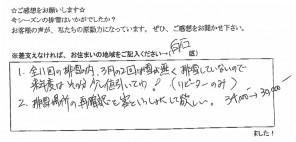 ☆ご感想をお願いします☆
今シーズンの排雪はいかがでしたか?
お客様の声が、私たちの原動力になっています。ぜひ、ご感想をお聞かせ下さい。
※差支えなければ、お住まいの地域をご記入ください→(白石 区)
1. 全11回の排雪の内、3月の2回は雪が無く排雪していないので
来年度は その分 少し値引いてね! (リピーターのみ)
2. 排雪場所の再確認を客といっしょにして欲しい。 34,000→30,000
ました!